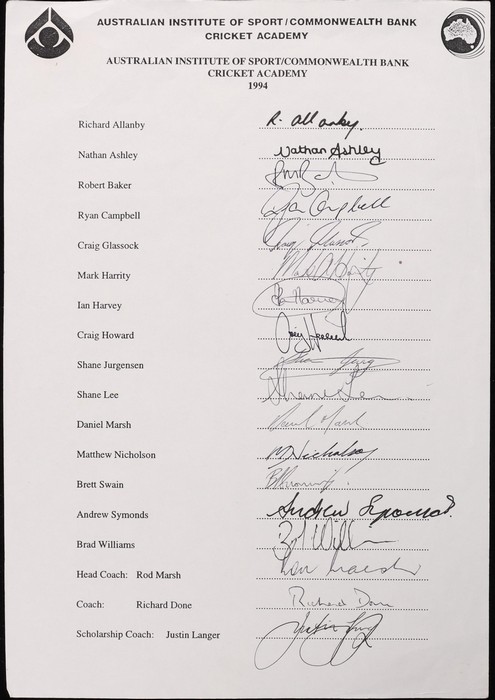 AUSTRALIAN INSTITUTE OF SPORT/COMMONWEALTH BANK
CRICKET ACADEMY
AUSTRALIAN INSTITUTE OF SPORT/COMMONWEALTH BANK
CRICKET ACADEMY
1994
Richard Allanby R. Allanby.
Nathan Ashley Nathan Ashley
Robert Baker
Ryan Campbell Ryan Campbell
Craig Glassock Craig Glassock
Mark Harrity Mark Harrity
Ian Harvey Ian Harvey
Craig Howard Craig Howard
Shane Jurgensen
Shane Lee Shane Lee
Daniel Marsh Daniel Marsh
Matthew Nicholson M Nicholson
Brett Swain
Andrew Symonds Andrew Symonds
Brad Williams
Head Coach: Rod Marsh
Coach: Richard Done Richard Done
Scholarship Coach: Justin Langer